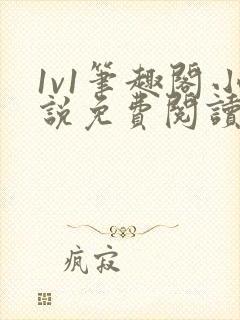 1v1筆趣閣.小
説免費閱讀
瘋寂